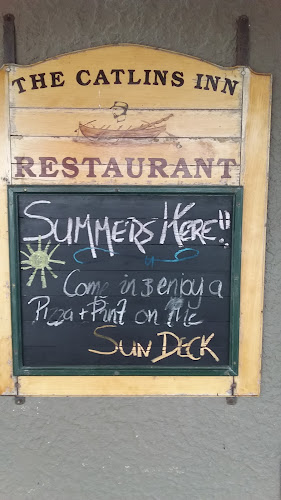 THE CATLINS INN
RESTAURANT
SUMMERS HERE!!
Come in & enjoy a
Pizza + Pint on the
SUN DECK